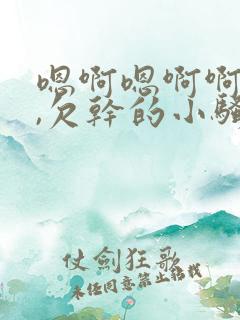 嗯啊嗯啊啊
,欠幹的小騷
仗劍狂歌
未经同意禁止转载